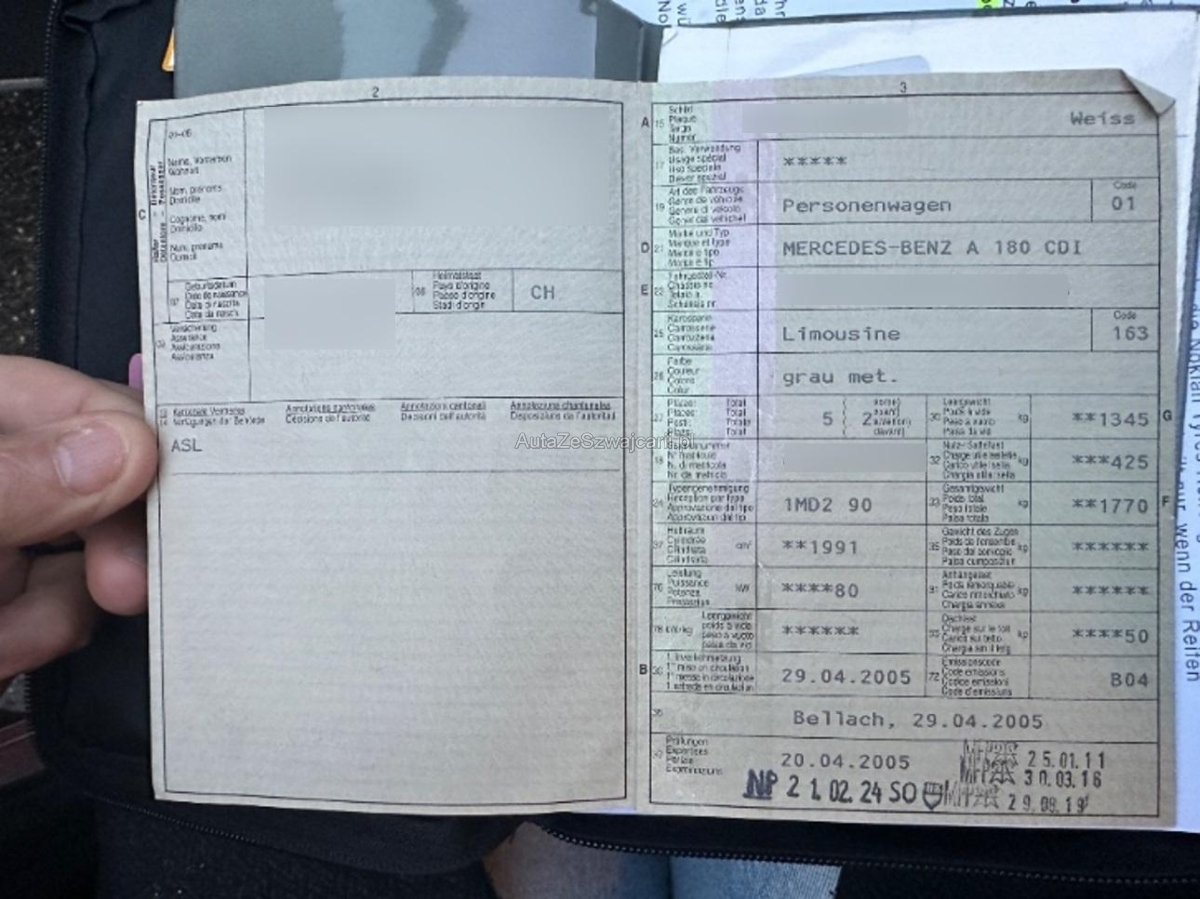 2
01-06
Name, Vornamen
Wohnort
Nom, prénoms
Domicile
Cognome, nomi
Domicilio
Num, prenoms
Domicil
C
07
Geburtsdatum
Date de naissance
Data di nascita
Data da nasch.
08
Heimatstaat
Pays d'origine
Paese d'origine
Stadi d'origin
CH
09
Versicherung
Assurance
Assicurazione
Assicuranza
Kantonale Vermerke
Verfügungen der Behörde
Annotations cantonales
Décisions de l'autorité
Annotazioni cantonali
Decisioni dell'autorità
Annotaziuns chantunalas
Disposiziuns da l'autoritad
ASL
3
A 15
Schild
Plaque
Targa
Numer
Weiss
17
Bes. Verwendung
Usage spécial
Uso speciale
Diever spezial
*****
19
Art des Fahrzeugs
Genre de véhicule
Genere di veicolo
Gener dal vehichel
Personenwagen
Code
01
D 21
Marke und Typ
Marque et type
Marca e tipo
Marca e tip
MERCEDES-BENZ A 180 CDI
E 23
Fahrgestell-Nr.
Châssis no
Telaio n.
Schassis nr.
25
Karosserie
Carrosserie
Carrozzeria
Carossaria
Limousine
Code
163
26
Farbe
Couleur
Colore
Colur
grau met.
27
Plätze: Total
Places: Total
Posti: Totale
Plazs: Total
5 ( 2
30
Leergewicht
Poids à vide
Peso a vuoto
Paisa da vid
kg
**1345
G
18
Stammnummer
N° matricule
N. di matricola
Nr. da matricla
32
Nutz-/Sattellast
Charge utile/sellette
Carico utile/sella
Chargia utila/sella
kg
***425
24
Typengenehmigung
Réception par type
Approvazione del tipo
Approvaziun dal tip
1MD2 90
33
Gesamtgewicht
Poids total
Peso totale
Paisa totala
kg
**1770
F
37
Hubraum
Cylindrée
Cilindrata
Cilindrada
cm³
**1991
35
Gewicht des Zuges
Poids de l'ensemble
Peso del convoglio
Paisa cumposiziun
kg
******
76
Leistung
Puissance
Potenza
Prestaziun
kW
****80
31
Anhängelast
Poids remorquable
Carico rimorchiato
Chargia annexa
kg
******
78 kW/kg
Leergewicht
poids à vide
peso a vuoto
paisa da vid
******
55
Dachlast
Charge sur le toit
Carico sul tetto
Chargia sin il tetg
kg
****50
B 36
1. Inverkehrsetzung
1re mise en circulation
1a messa in circolazione
1. entrada en circulaziun
29.04.2005
72
Emissionscode
Code émissions
Codice emissioni
Code d'emissiuns
B04
38
Bellach, 29.04.2005
39
Prüfungen
Expertises
Perizie
Examinaziuns
20.04.2005
25.01.11
30.03.16
NP 21.02.24 SO
29.08.19
AutaZeSzwajcarii.pl
wenn der Reifen